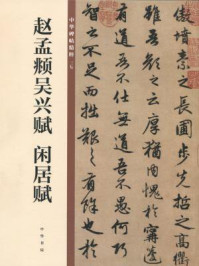 中华碑帖精粹
赵孟頫吴兴赋 闲居赋
中华书局
傲墳素之長圃步先哲之高衢
雖吾顏之云厚猶內愧於甯蘧
有道吾不仕無道吾不愚何巧
智之不足而拙艱之有餘也於